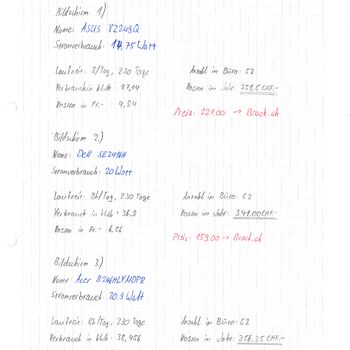 Bildschirm 1)
Name: ASUS VZ249Q
Stromverbrauch: 14,75 Watt
Laufzeit: 8/Tag, 230 Tage Anzahl im Büro: 52
Verbrauch in kWh: 27,14 Kosten im Jahr: 251.5 CHF.-
Kosten in Fr.- : 4,84
Preis: 221.00 → Brack.ch
Bildschirm 2)
Name: Dell SE2416H
Stromverbrauch: 20 Watt
Laufzeit: 8h/Tag, 230 Tage Anzahl im Büro: 52
Verbrauch in kWh: 36,8 Kosten im Jahr: 341.00 CHF.-
Kosten in Fr.- 6.56
Preis: 159.00 → Brack.ch
Bildschirm 3)
Name: Acer
Stromverbrauch: 20.9 Watt
Laufzeit: 8h/Tag, 230 Tage Anzahl im Büro: 52
Verbrauch in kWh: 38,456 Kosten im Jahr: 356.35 CHF.-